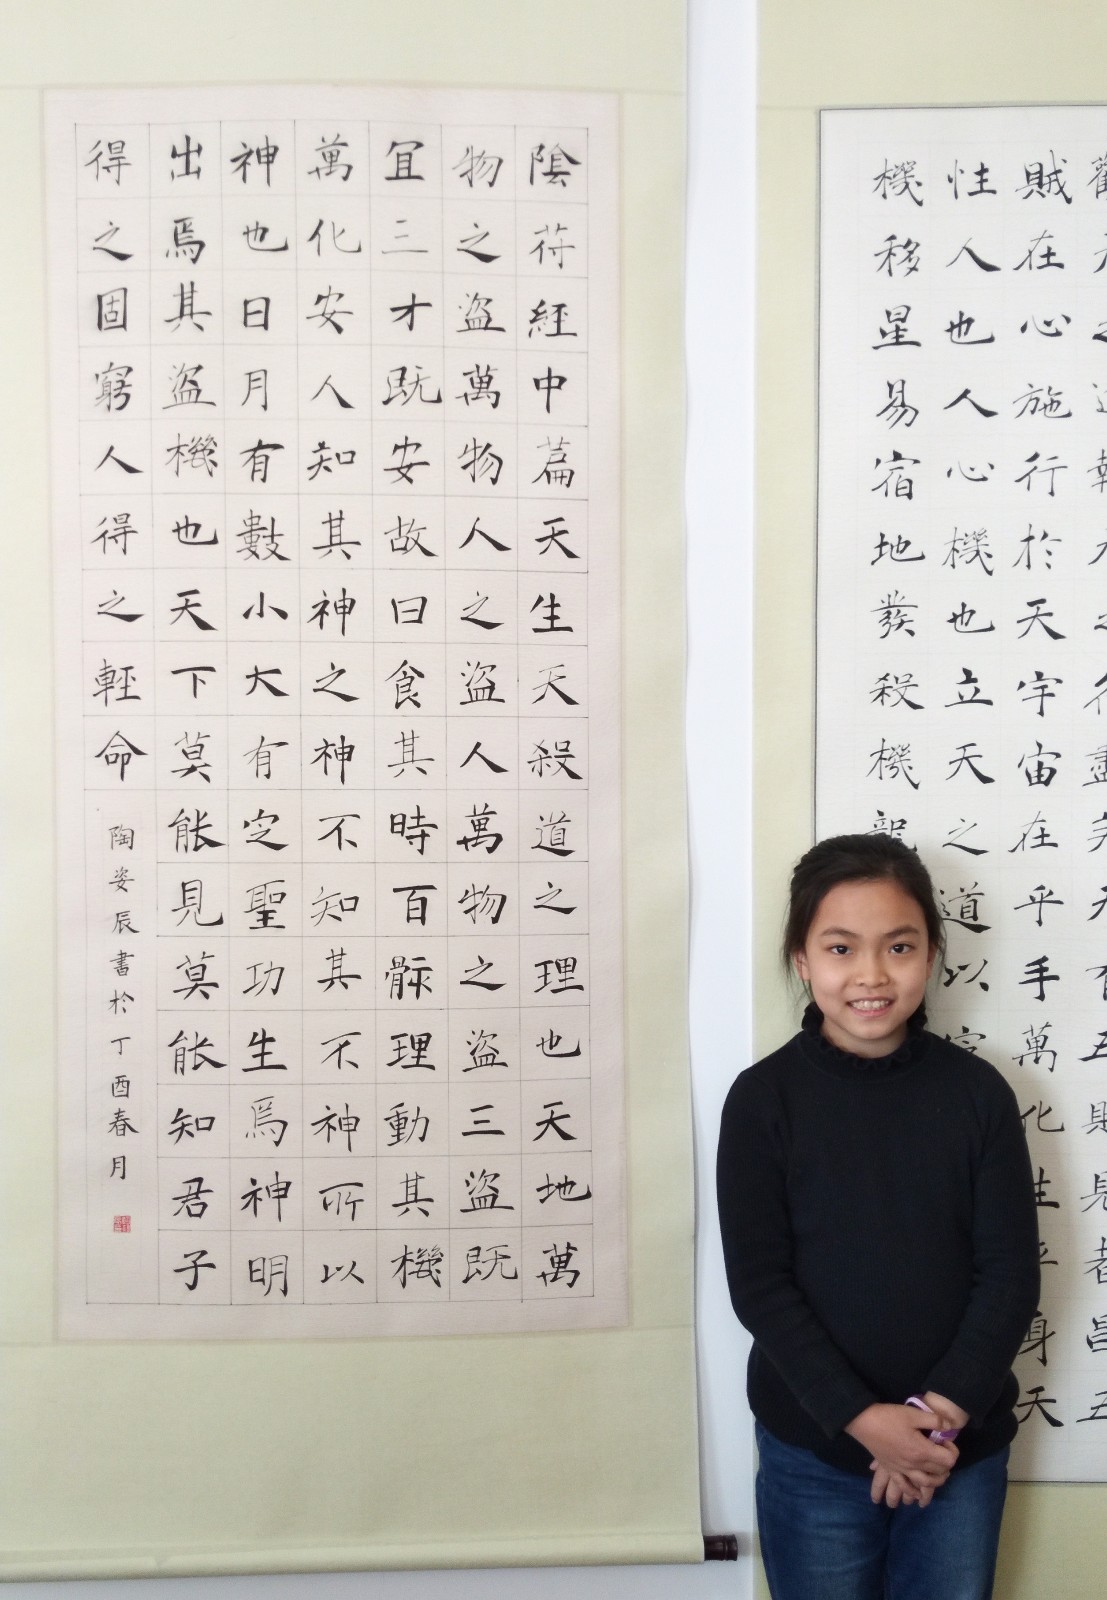 觀天之道執天之行盡矣天有五賊見者昌五
賊在心施行於天宇宙在乎手萬化生乎身天
性人也人心機也立天之道以定
機移星易宿地發殺機龍
陰苻經中篇天生天殺道之理也天地萬
物之盜萬物人之盜人萬物之盜三盜既
宜三才既安故曰食其時百骸理動其機
萬化安人知其神之神不知其不神所以
神也日月有數小大有定聖功生焉神明
出焉其盜機也天下莫能見莫能知君子
得之固窮人得之輕命
陶姿辰書於丁酉春月